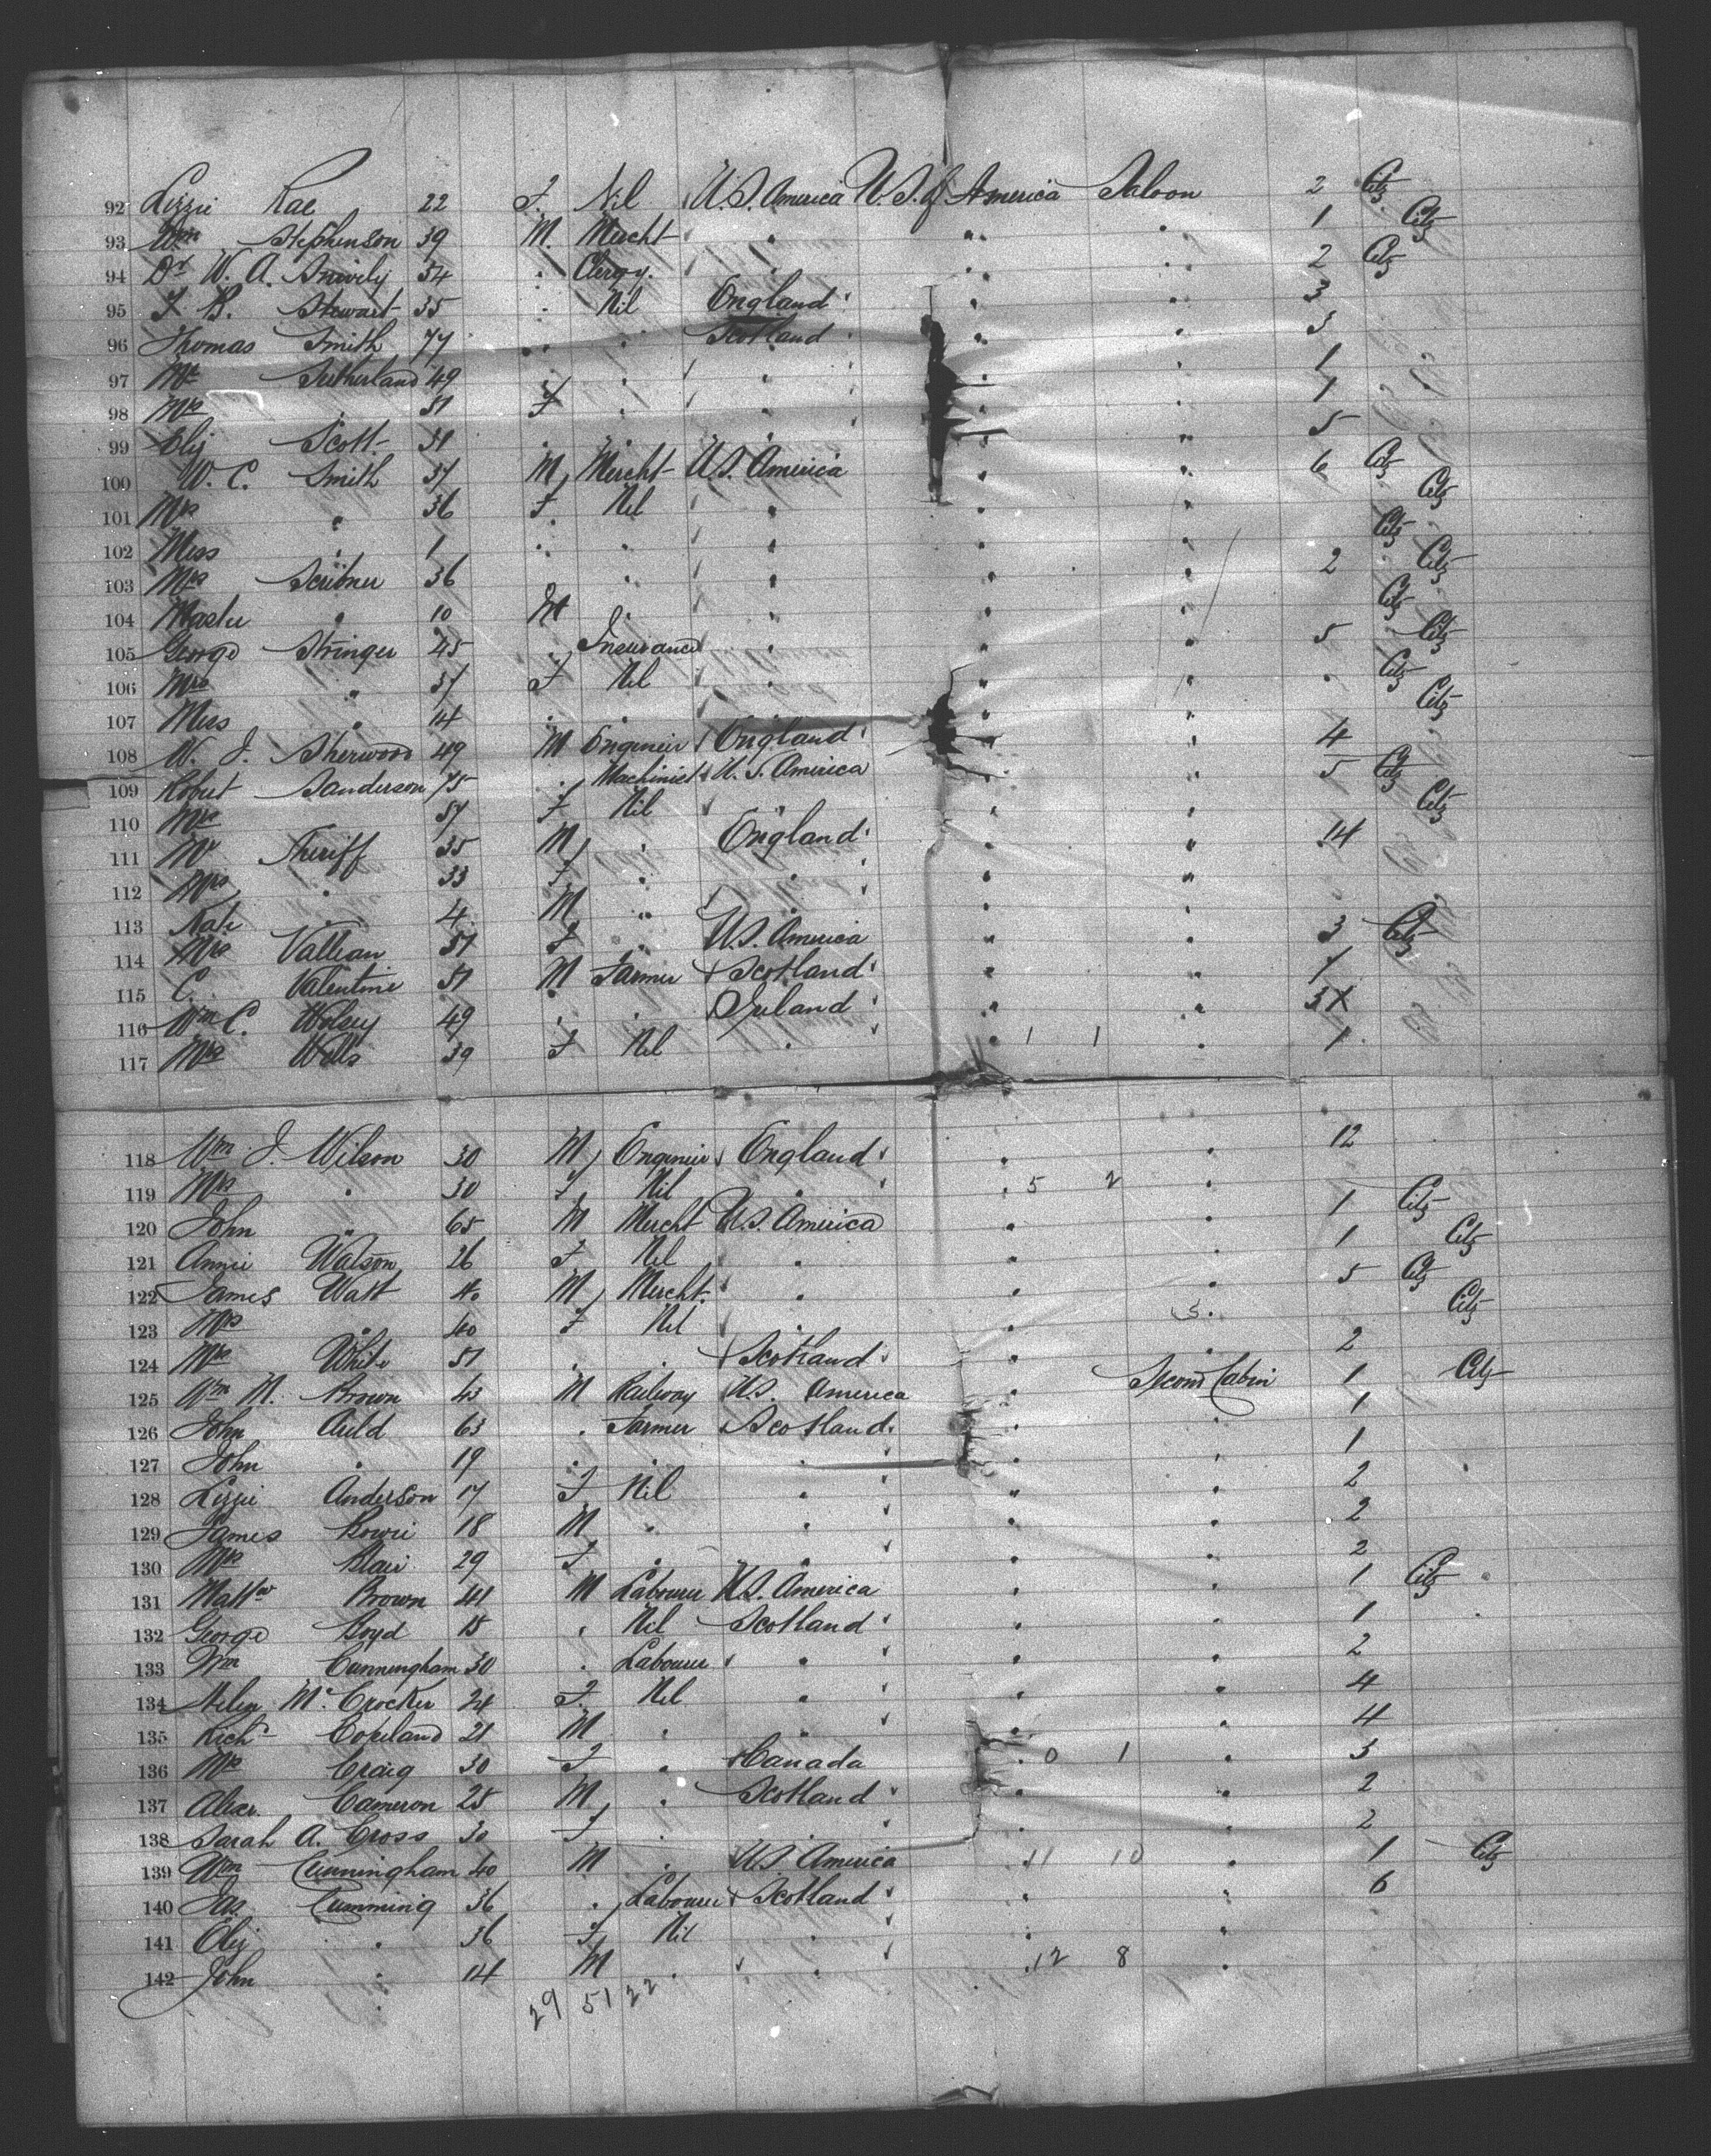 92 Lizzie Rae 22 F. Nil U.S. America U.S. of America Saloon 2 Citz
93 Wm Stephenson 39 M. Mercht " " " 1 Citz
94 Dr W. A. Snively 34 " Clergy. " " " 2 Citz
95 J. B. Stewart 35 " Nil England " " 3
96 Thomas Smith 77 " " Scotland " " 3
97 Mr Sutherland 49 " " " " 1
98 Mrs " 51 F " " " " 1
99 Eliz Scott 51 " " " " " 5
100 W. C. Smith 37 M Mercht U.S. America " " 6 Citz
101 Mrs " 36 F Nil " " " Citz
102 Miss " 1 " " " " " Citz
103 Mrs Scribner 36 " " " " 2 Citz
104 Master " 10 M " " " " Citz
105 George Stringer 45 " Insurance " " " 5 Citz
106 Mrs " 37 F Nil " " " " Citz
107 Miss " 14 " " " " " Citz
108 W. J. Sherwood 49 M Engineer England " " 4
109 Robert Sanderson 75 " Machinist U.S. America " " 5 Citz
110 Mrs 57 F Nil " " " Citz
111 Mr Sheriff 35 M " England " " 14
112 Mrs " 33 F " " " "
113 Kate " 4 M " " " "
114 Mrs Vallean 57 F " U.S. America " " 3 Citz
115 C. Valentine 51 M Farmer Scotland " " 1
116 Wm C. Wolsey 49 " " Ireland " " 3 X
117 Mrs Wells 39 F Nil " " 1 1 " 1
118 Wm J. Wilson 30 M Engineer England " " 12
119 Mrs " 30 F Nil " " 5 2 "
120 John " 65 M Mercht U.S. America " " 1 Citz
121 Annie Watson 26 F Nil " " " 1 Citz
122 James Watt 40 M Mercht. " " " 5 Citz
123 Mrs " 40 F Nil " " " Citz
124 Mrs White 51 " " Scotland " " 2
125 Wm M. Brown 43 M Railway U.S. America " Second Cabin 1 Citz
126 John Auld 63 " Farmer Scotland " " 1
127 John " 19 " " " " " 1
128 Lizzie Anderson 17 F Nil " " " 2
129 James Bowie 18 M " " " " 2
130 Mrs Blair 29 F " " " " 2
131 Mattw Brown 41 M Labourer U.S. America " " 1 Citz
132 George Boyd 15 " Nil Scotland " " 1
133 Wm Cunningham 30 " Labourer " " " 2
134 Helen Mc.Crocker 24 F. Nil " " " 4
135 Richd Copeland 21 M " " " " 4
136 Mrs Craig 30 F " Canada " 0 1 " 3
137 Alexr. Cameron 25 M " Scotland " " 2
138 Sarah A. Cross 30 F " " " " 2
139 Wm Cunningham 40 M " U.S. America " 11 10 " 1 Citz
140 Jas. Cumming 36 " Labourer Scotland " " 6
141 Eliz " 36 F Nil " " "
142 John " 14 M " " " 12 8 "
29 51 22